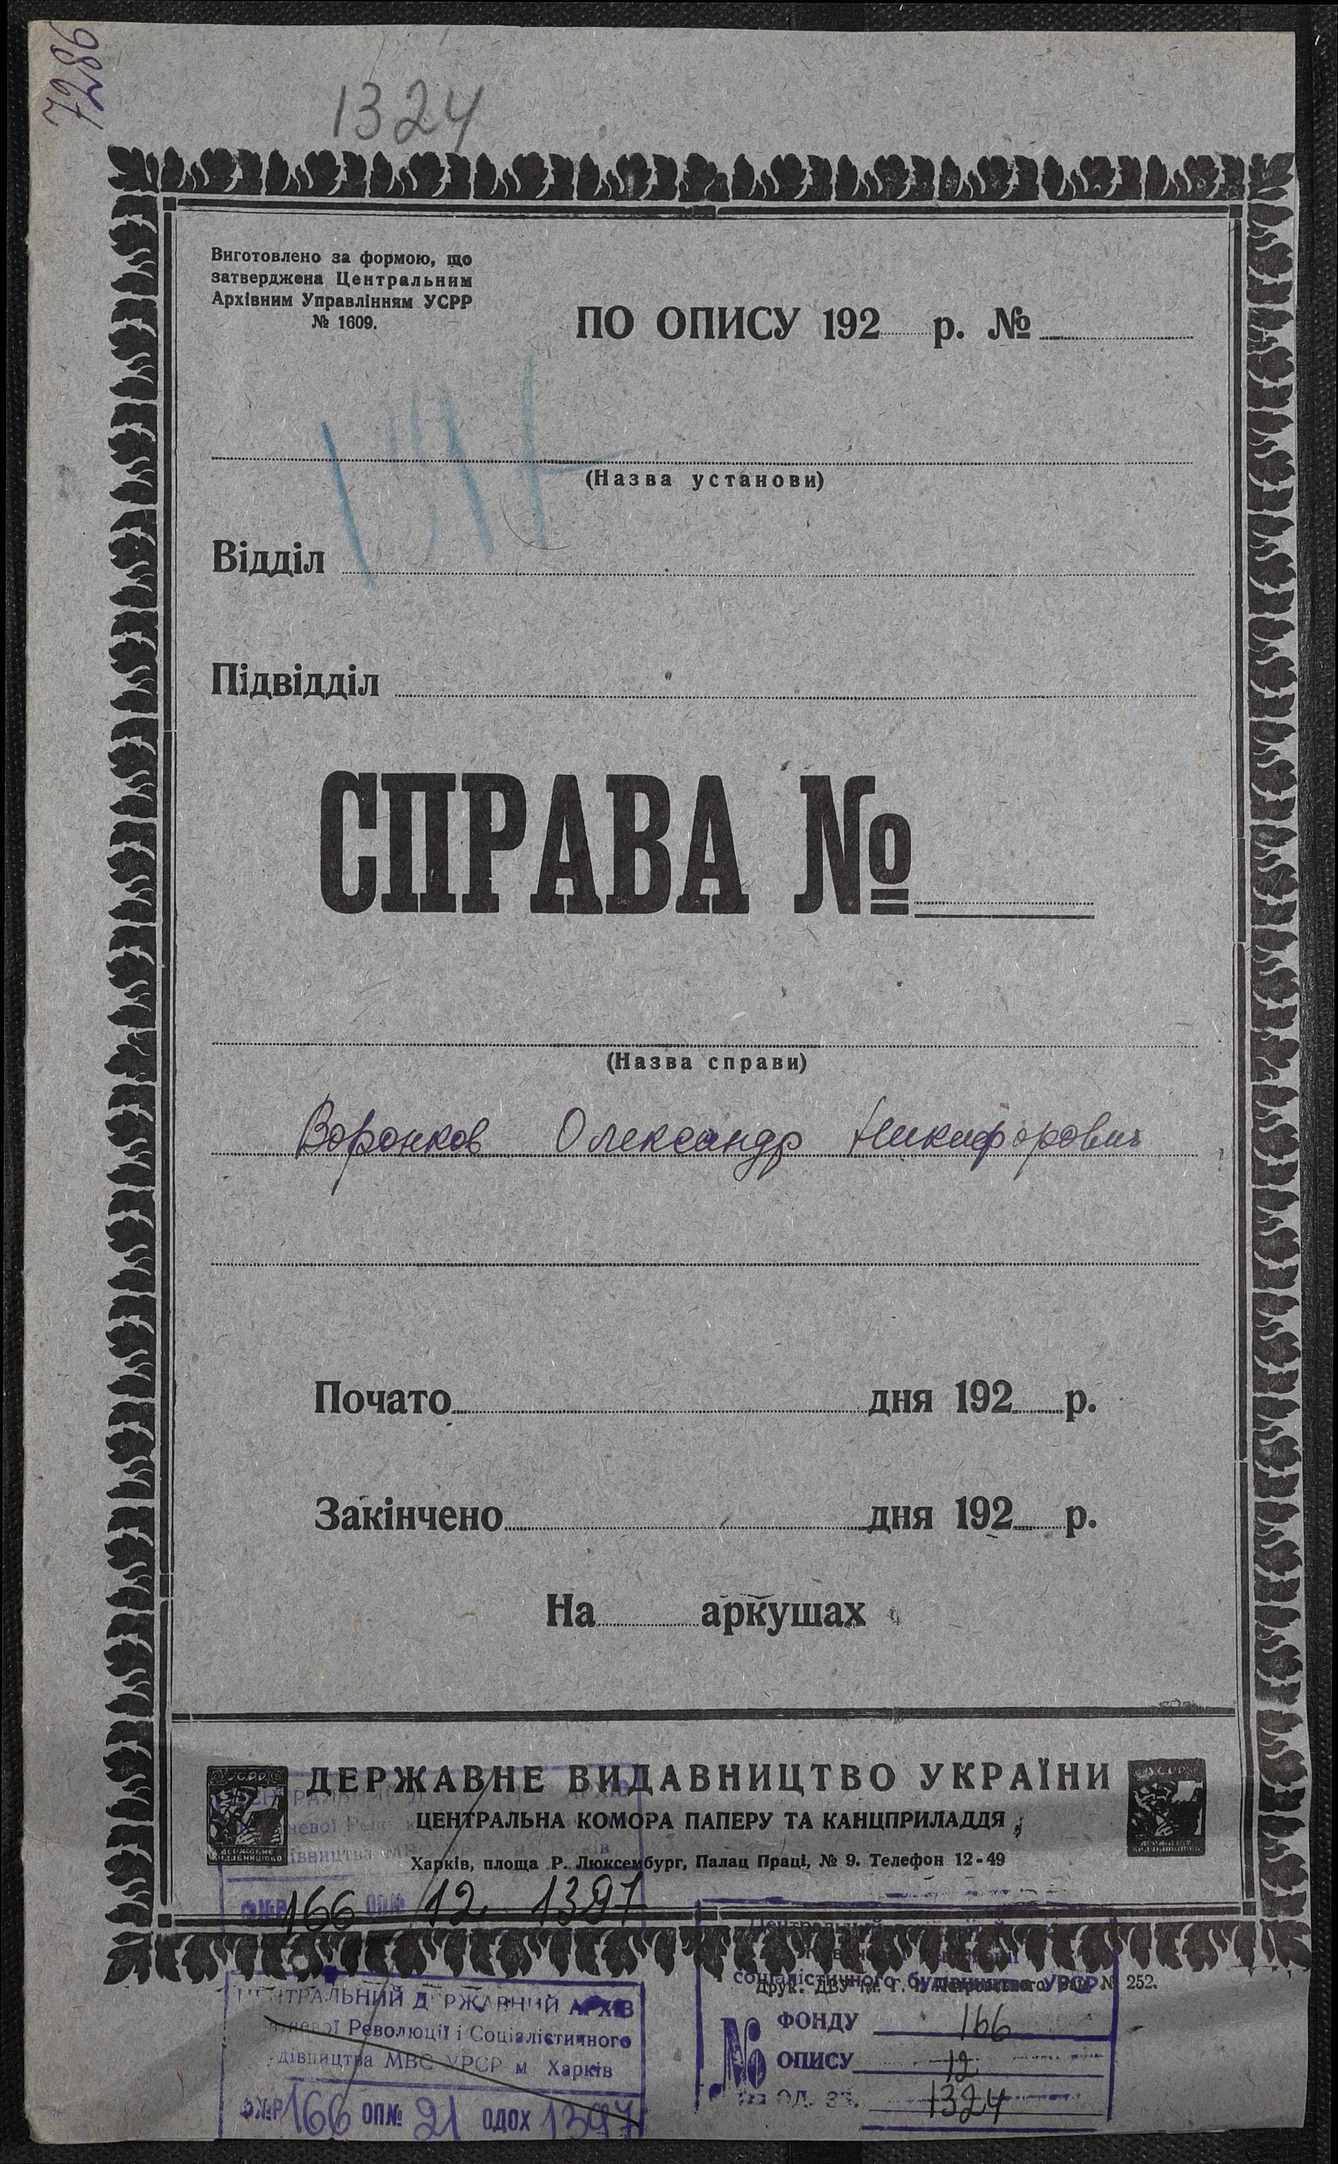 7286
1324
Виготовлено за формою, що
затверджена Центральним
Архівним Управлінням УСРР
№ 1609.
ПО ОПИСУ 192 р. №
(Назва установи)
Відділ
Підвідділ
СПРАВА №
(Назва справи)
Воронков Олександр Никифорович
Почато дня 192 р.
Закінчено дня 192 р.
На аркушах
ДЕРЖАВНЕ ВИДАВНИЦТВО УКРАЇНИ
ЦЕНТРАЛЬНА КОМОРА ПАПЕРУ ТА КАНЦПРИЛАДДЯ
Харків, площа Р. Люксембург, Палац Праці, № 9. Телефон 12-49
166 ОП№ 12 1397
соціалістичного будівництва УРСР
Друк. ДВУ № 252.
ЦЕНТРАЛЬНИЙ ДЕРЖАВНИЙ АРХІВ
Революції і Соціалістичного
МВС УРСР м Харків
Ф№Р 166 ОП№ 21 ОДОХ 1397
№
ФОНДУ 166
ОПИСУ 12
ОД. ЗБ. 1324